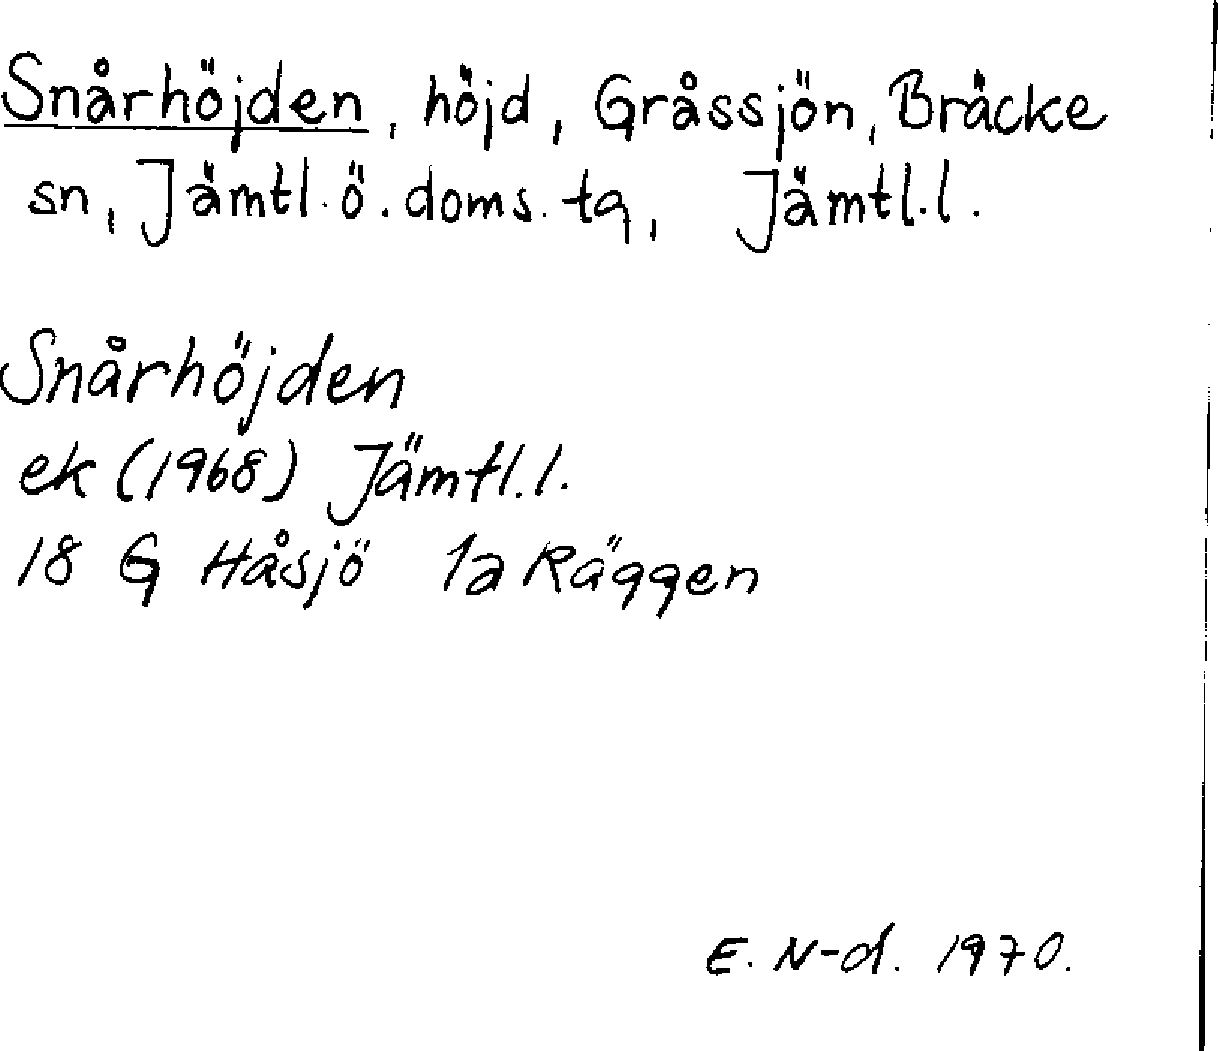 Snårhöjden, höjd, Gråssjön, Bräcke
sn, Jämtl. ö. doms. tg, Jämtl. l.
Snårhöjden
ek (1968) Jämtl. l.
18 G Håsjö 1a Räggen
E. N-d. 1970.